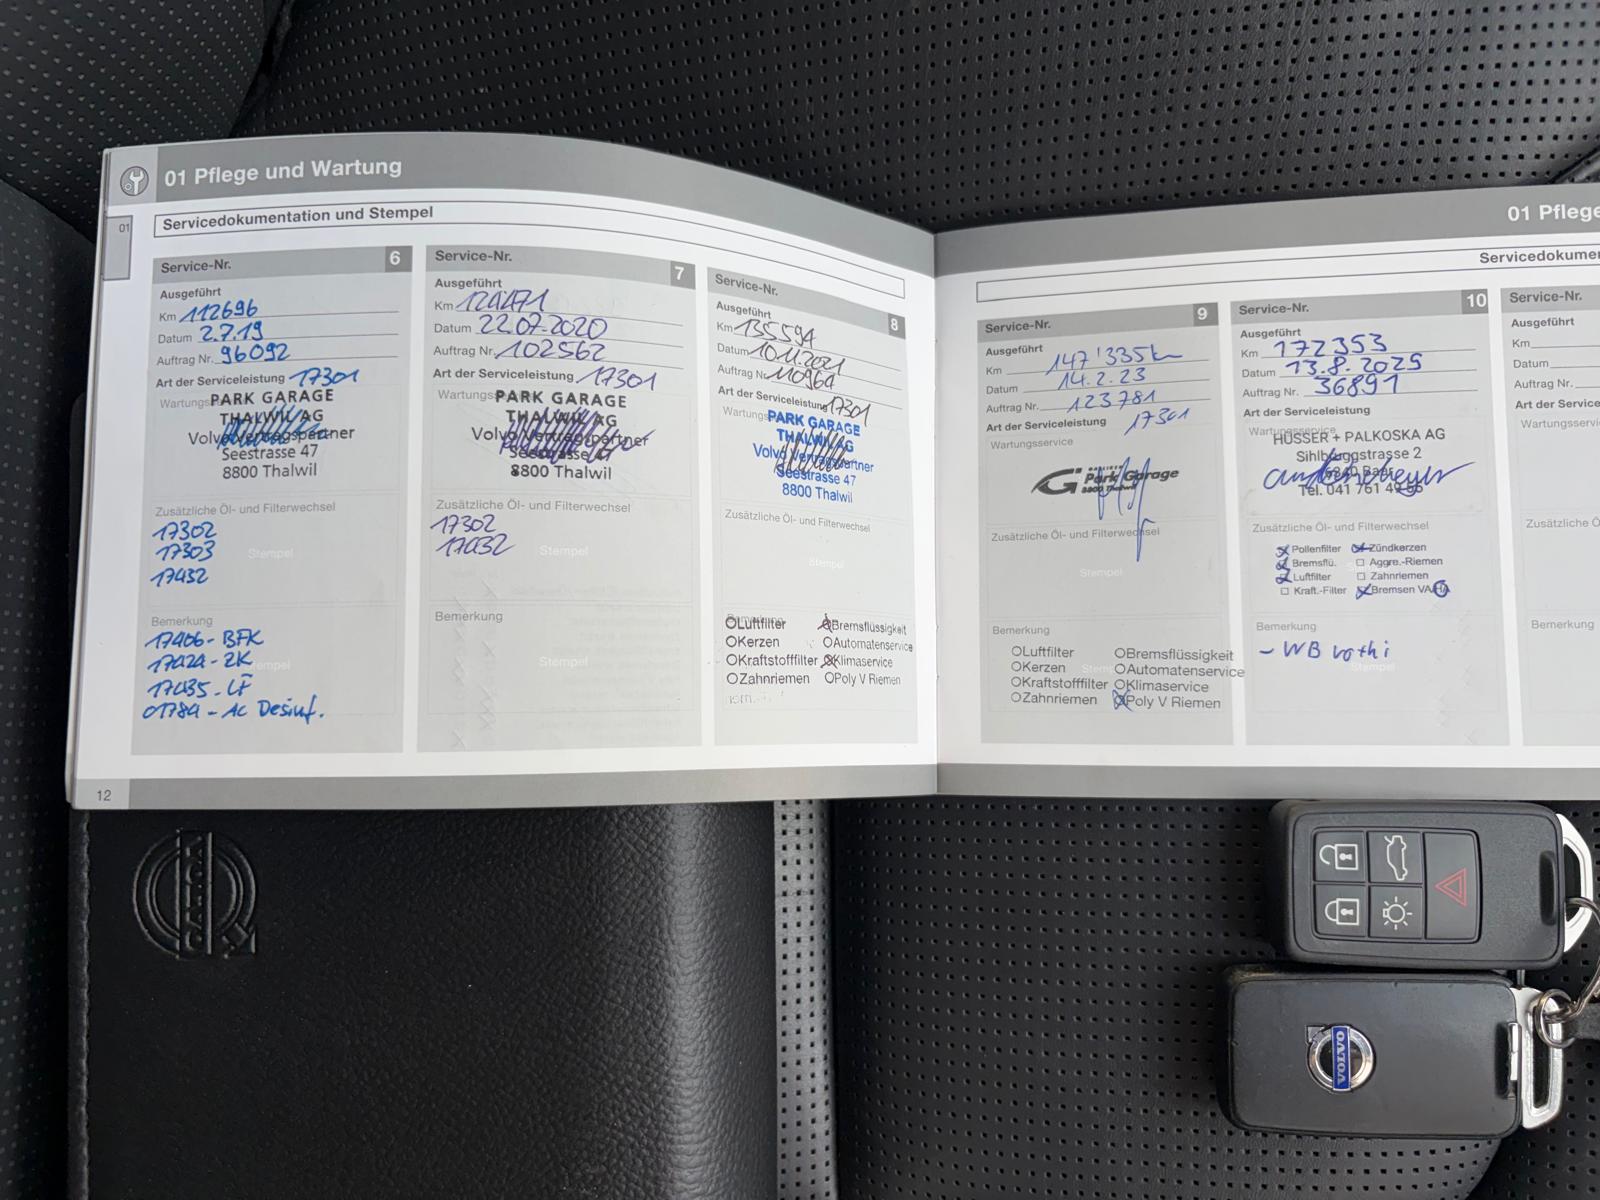 01 Pflege und Wartung
01
Servicedokumentation und Stempel
Service-Nr. 6
Ausgeführt
Km 112696
Datum 2.7.19
Auftrag Nr. 96092
Art der Serviceleistung 17301
Wartungs
PARK GARAGE
THALWIL AG
Volvo Vertragspartner
Seestrasse 47
8800 Thalwil
Zusätzliche Öl- und Filterwechsel
17302
17303
17432
Stempel
Bemerkung
17406 - BFK
17424 - ZK
17435 - LF
01784 - AC Desinf.
12
Service-Nr. 7
Ausgeführt
Km 124471
Datum 22.07.2020
Auftrag Nr. 102562
Art der Serviceleistung 17301
Wartungs
PARK GARAGE
THALWIL AG
Volvo Vertragspartner
Seestrasse 47
8800 Thalwil
Zusätzliche Öl- und Filterwechsel
17302
17432
Stempel
Bemerkung
Stempel
Service-Nr. 8
Ausgeführt
Km 135594
Datum 10.11.2021
Auftrag Nr. 110964
Art der Serviceleistung 17301
Wartungs
PARK GARAGE
THALWIL AG
Volvo Vertragspartner
Seestrasse 47
8800 Thalwil
Zusätzliche Öl- und Filterwechsel
Stempel
Luftfilter Bremsflüssigkeit
Kerzen Automatenservice
Kraftstofffilter Klimaservice
Zahnriemen Poly V Riemen
01 Pflege
Servicedokumen
Service-Nr. 9
Ausgeführt
Km 147'335km
Datum 14.2.23
Auftrag Nr. 123781
Art der Serviceleistung 17301
Wartungsservice
Park Garage
8800 Thalwil
Zusätzliche Öl- und Filterwechsel
Stempel
Bemerkung
Luftfilter Bremsflüssigkeit
Kerzen Automatenservice
Kraftstofffilter Klimaservice
Zahnriemen Poly V Riemen
Service-Nr. 10
Ausgeführt
Km 172353
Datum 13.8.2025
Auftrag Nr. 36891
Art der Serviceleistung
Wartungsservice
HÜSSER + PALKOSKA AG
Sihlbruggstrasse 2
6340 Baar
Tel. 041 761 49 56
Zusätzliche Öl- und Filterwechsel
Pollenfilter Zündkerzen
Bremsflü. Aggre.-Riemen
Luftfilter Zahnriemen
Kraft.-Filter Bremsen VA/HA
Bemerkung
- WB
Stempel
Service-Nr.
Ausgeführt
Km
Datum
Auftrag Nr.
Art der Service
Wartungsservic
Zusätzliche Ö
Bemerkung
VOLVO
VOLVO